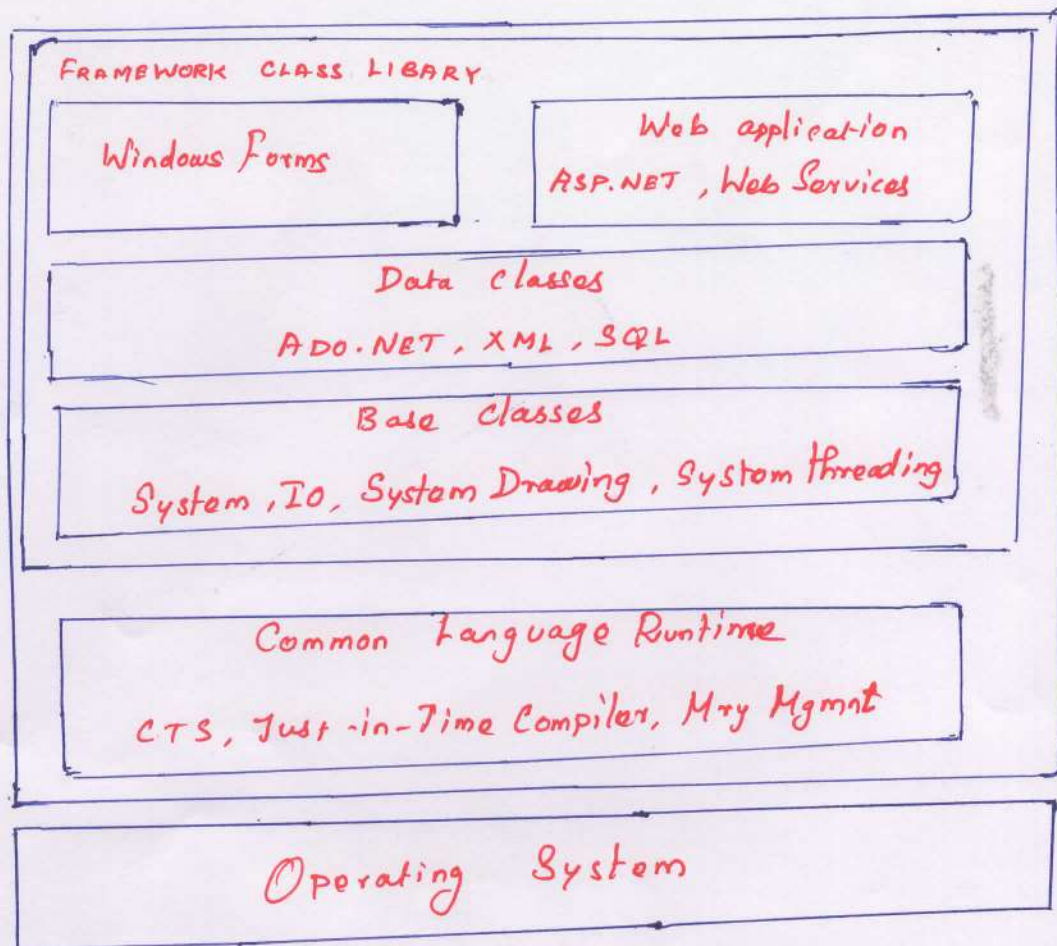 FRAMEWORK CLASS LIBARY
Windows Forms
Web application
ASP.NET, Web Services
Data classes
ADO.NET, XML, SQL
Base classes
System, IO, System Drawing, System threading
Common Language Runtime
CTS, Just-in-Time Compiler, Mry Mgmnt
Operating System